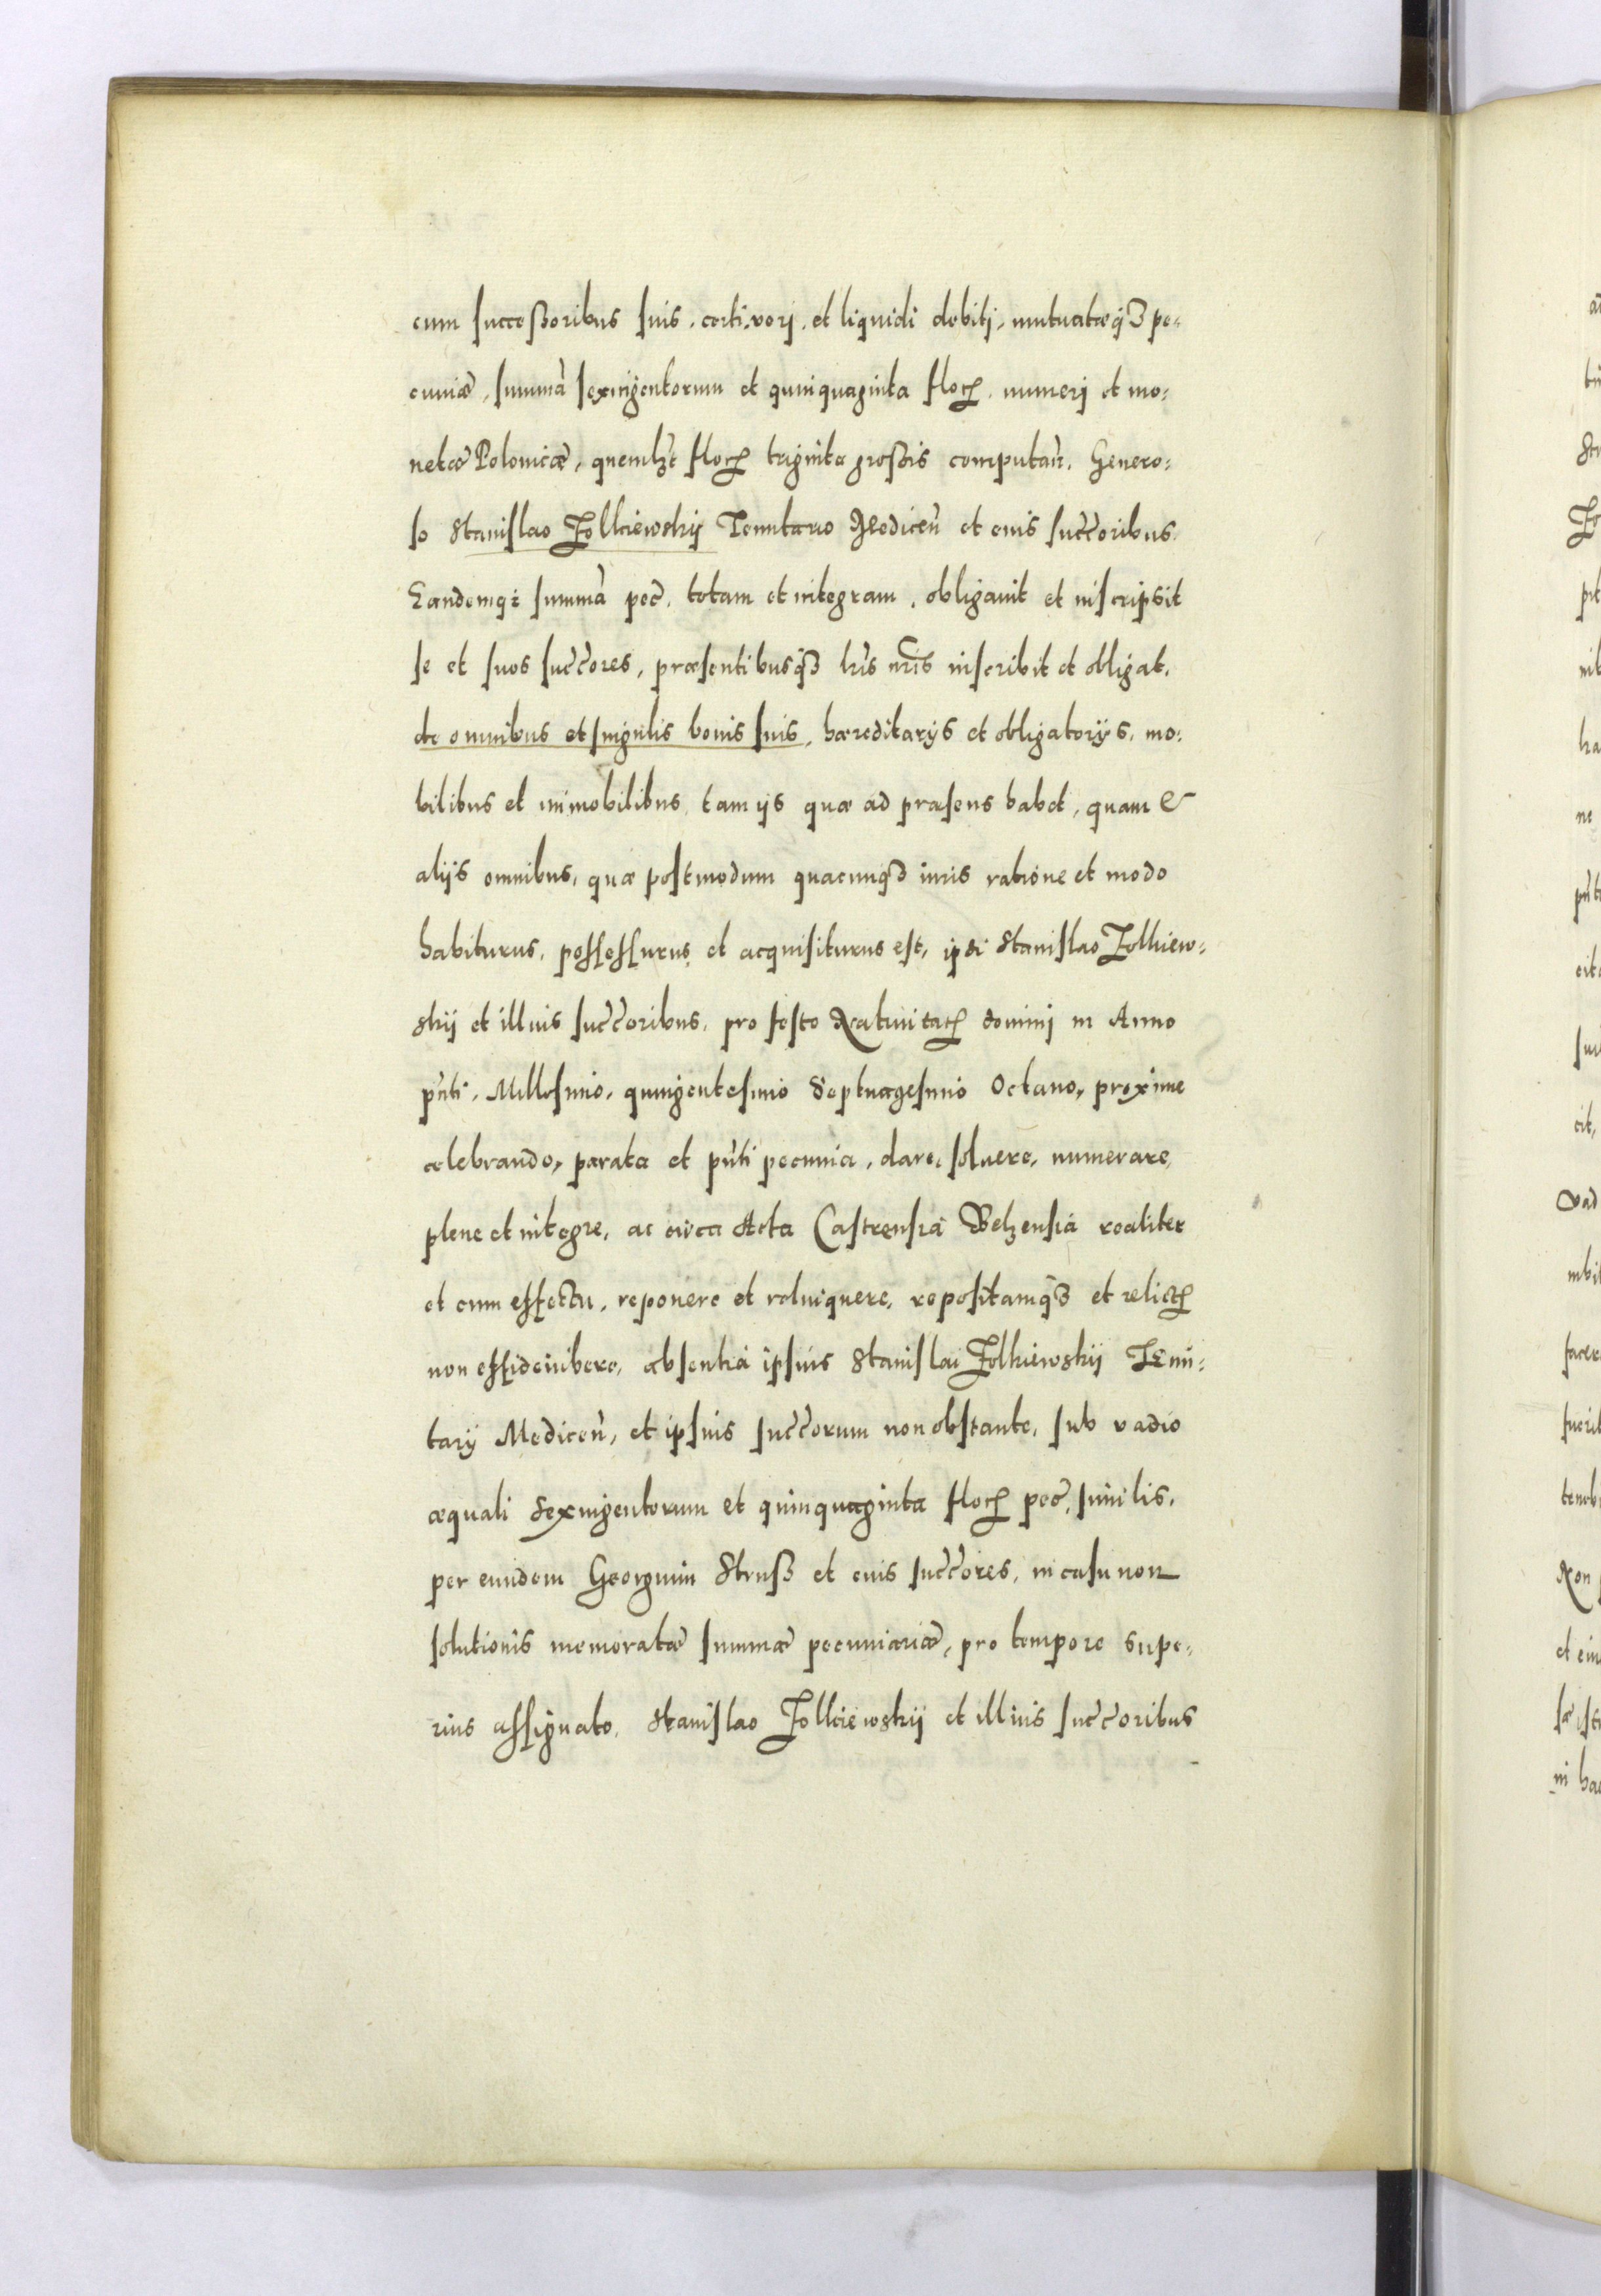 cum successoribus suis, certi, veri, et liquidi debitj, mutuatæq3 pe-
cuniæ, summã sexingentorum et quinquaginta flor, numerj et mo-
netæ Polonicæ, quemlzt flor triginta grossis computañ. Genero-
so Stanislao Zolkiewskij Tenutario Mediceñ et eius succoribus.
Eandemq3 summã pec. totam et integram, obligauit et inscripsit
se et suos succores, præsentibusq3 lris nris inscribit et obligat,
de omnibus et singulis bonis suis, hæreditarijs et obligatorijs, mo-
bilibus et immobilibus tam ijs quæ ad præsens habet, quam &
alijs omnibus, quæ postmodum quacunq3 iuris ratione et modo
habiturus, possessurus et acquisiturus est, ipsi Stanislao Zolkiew-
skij et illius succoribus, pro festo Natiuitat dominj in Anno
pñti, Millesimo, quingentesimo Septuagesimo Octauo, proxime
celebrando, parata et pñti pecunia, dare, soluere, numerare,
plene et integre, ac circa Acta Castrensia Belzensia realiter
et cum effectu, reponere et relinquere, repositamq3 et relict
non effidcuibere, absentia ipsius Stanislai Zolkiewskij Tenu-
tarij Mediceñ, et ipsius succorum non obstante, sub vadio
æquali Sexingentorum et quinquaginta flor pec. similis,
per eundem Georgium Struß et eius succores, in casu non
solutionis memoratæ summæ pecuniariæ, pro tempore supe-
rius assignato, Stanislao Zolkiewskij et illius succoribus